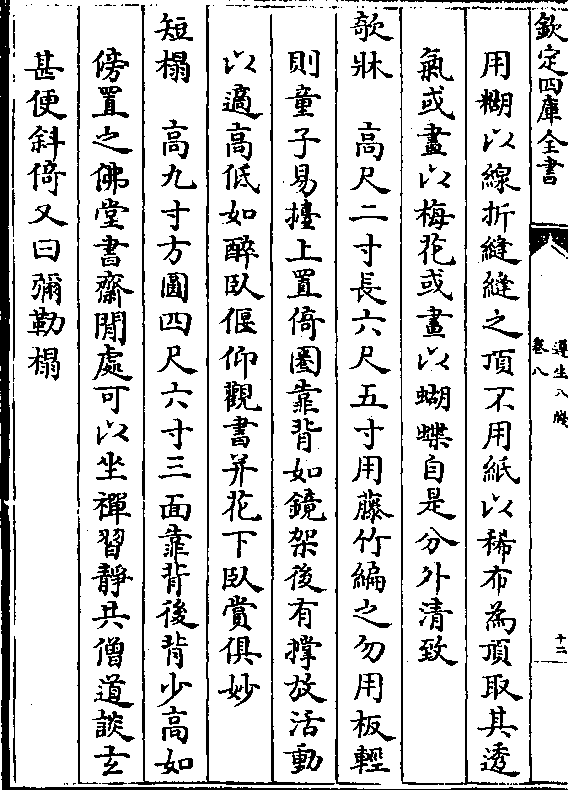 欽定四庫全書
遵生八牋
卷八
十二
用糊以線折縫縫之頂不用紙以稀布為頂取其透
氣或畫以梅花或畫以蝴蝶自是分外清致
欹牀　高尺二寸長六尺五寸用藤竹編之勿用板輕
則童子易擡上置倚圈靠背如鏡架後有撑放活動
以適高低如醉臥偃仰觀書并花下臥賞俱妙
短榻　高九寸方圓四尺六寸三面靠背後背少高如
傍置之佛堂書齋閒處可以坐禪習靜共僧道談玄
甚便斜倚又曰彌勒榻